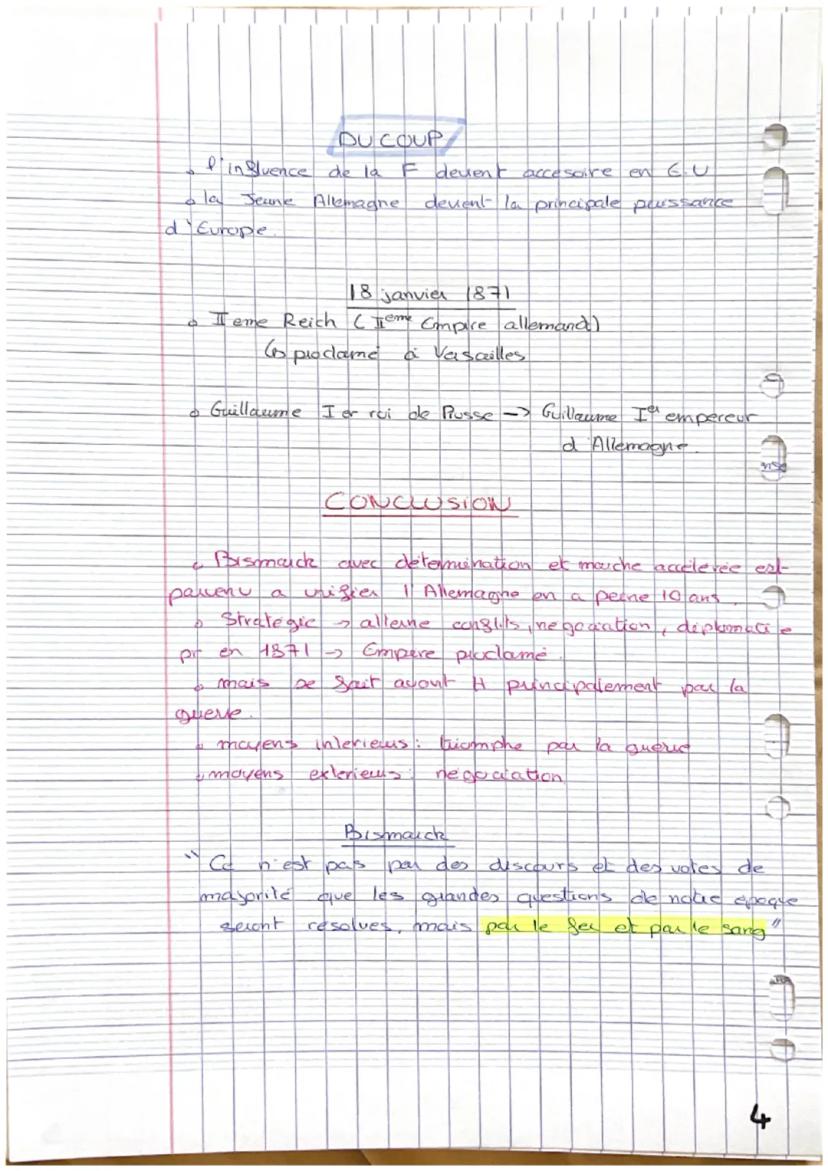 DU COUP
l'influence de la F devient accesoire en E.U
la Jeune Allemagne devient la principale puissance
d'Europe.
18 janvier 1871
II eme Reich (IIeme Empire allemand)
↳ proclamé à Versailles
Guillaume I er roi de Prusse -> Guillaume Ier empereur
d'Allemagne.
CONCLUSION
Bismarck avec détermination et marche accélérée est
parvenu a unifier l'Allemagne en a peine 10 ans.
Stratégie → alterne conflits, negociation, diplomatie
pr en 1871 → Empire proclamé.
mais se fait avant tt principalement par la
guerre.
moyens interieurs : triomphe par la guerre
moyens exterieurs : negociation
Bismarck
"Ce n'est pas par des discours et des votes de
majorité que les grandes questions de notre époque
seront résolves, mais par le feu et par le sang"
4